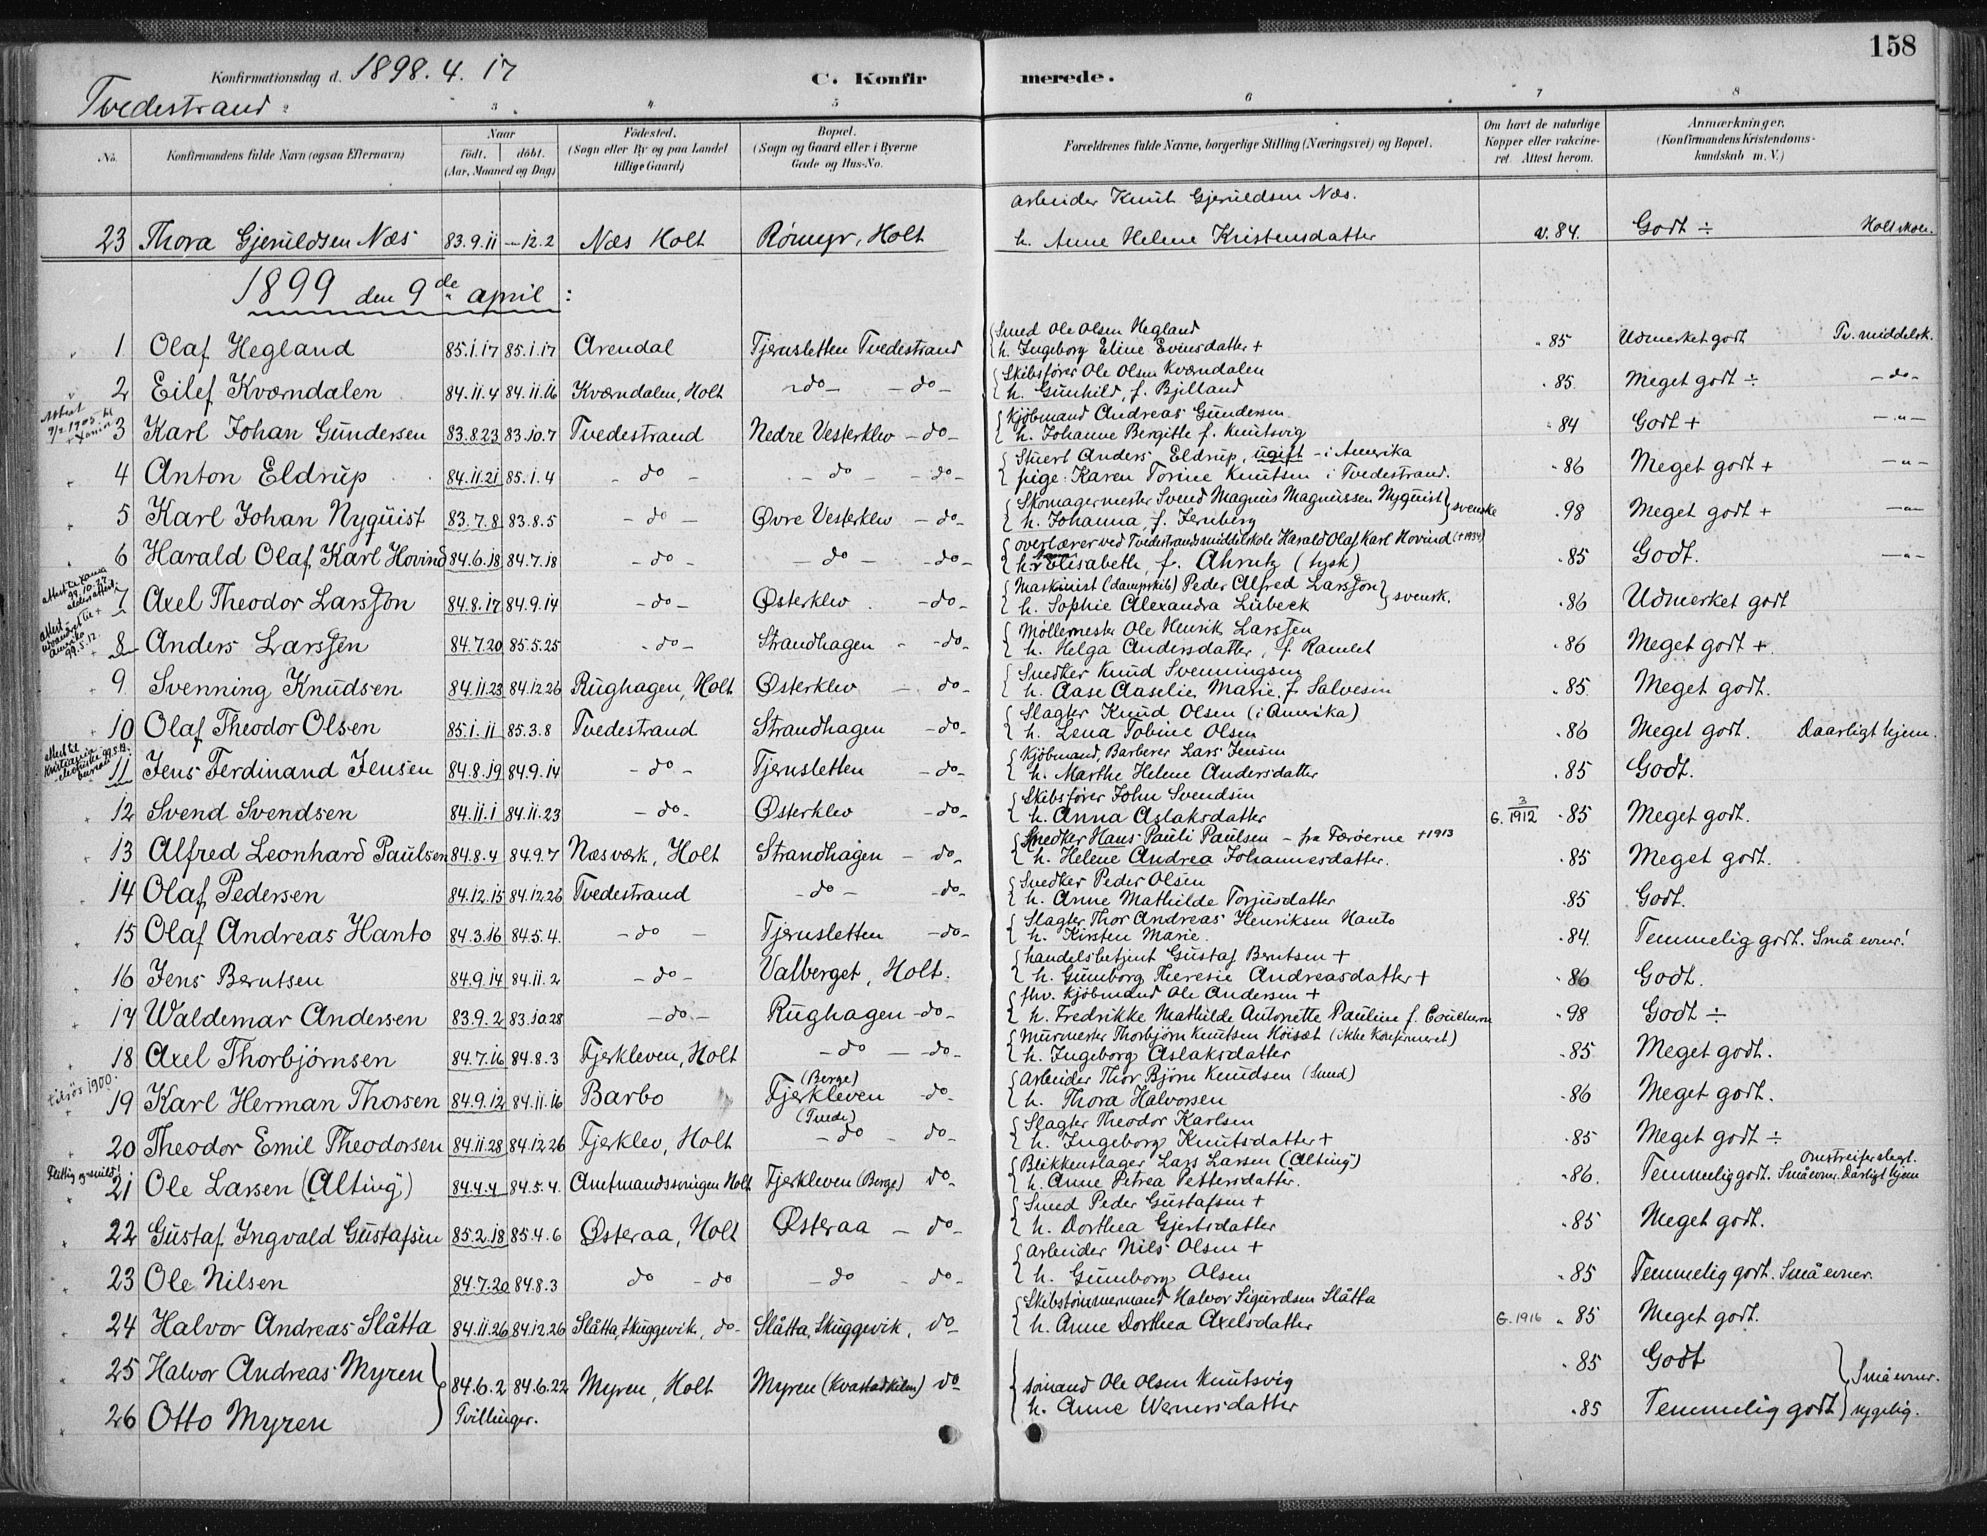 158
Konfirmationsdag d. 1898. 4. 17 C. Konfirmerede.
Tvedestrand
3 4 5 6 7 8
No. Konfirmandens fulde Navn (ogsaa Efternavn) Naar født. døbt. (Aar, Maaned og Dag) Fødested. (Sogn eller By og paa Landet tillige Gaard) Bopæl. (Sogn og Gaard eller i Byerne Gade og Hus-No. Forældrenes fulde Navne, borgerlige Stilling (Næringsvei) og Bopæl. Om havt de naturlige Kopper eller vakcineret. Attest herom. Anmærkninger. (Konfirmandens Kristendomskundskab m. V.)
arbeider Knut Gjeruldsen Næs.
23 Thora Gjeruldsen Næs 83.9.11 –12.2 Næs Holt Rømyr, Holt h. Anne Helene Kristensdatter v. 84. Godt ÷ Holt skole.
1899 den 9de april :
Smed Ole Olsen Hegland
1 Olaf Hegland 85.1.17 85.1.17 Arendal Tjernsletten Tvedestrand h. Ingeborg Eline Evensdatter + 85 Udmerket godt Tv. middelsk.
Skibsfører Ole Olsen Kværndalen
2 Eilef Kværndalen 84.11.4 84.11.16 Kværndalen, Holt –do– –do– h. Gunhild, f. Bjelland 85. Meget godt ÷ –do–
Attest 9/2 1905 til Xania
Kjøbmand Andreas Gundersen
3 Karl Johan Gundersen 83.8.23 83.10.7 Tvedestrand Nedre Vesterklev –do– h. Johanne Bergitte f. Knutsvig 84 Godt + –"–
Stuert Anders Eldrup, ugift – i Amerika
4 Anton Eldrup 84.11.21 85.1.4 –do– –do– –do– pige: Karen Torine Knutsen i Tvedestrand. 86 Meget godt + –"–
Skomagermester Svend Magnus Magnussen Nyquist } svenske
5 Karl Johan Nyquist 83.7.8 83.8.5 –do– Øvre Vesterklev –do– h. Johanna, f. Jernberg 98 Meget godt + –"–
overlærer ved Tvedestrands middelskole Harald Olaf Karl Hovind (+1934)
6 Harald Olaf Karl Hovind 84.6.18 84.7.18 –do– –do– –do– h. Elisabeth, f. Ahrntz (tysk) 85 Godt. –"–
attest til Xania 99.10.27 aldersattest.
Maskinist (dampskib) Peder Alfred Larsson } svensk.
7 Axel Theodor Larsson 84.8.17 84.9.14 –do– Østerklev –do– h. Sophie Alexandra Lübeck 86 Udmerket godt
attest – udvandret til Amerika 99.5.12.
Møllemester Ole Henrik Larssen
8 Anders Larssen 84.7.20 85.5.25 –do– Strandhagen –do– h. Helga Andersdatter, f Ramlet 86 Meget godt +
Snedker Knud Svenningsen
9 Svenning Knudsen 84.11.23 84.12.26 Rughagen, Holt Østerklev –do– h. Aase Aaselie Marie f. Salvesen 85. Meget godt.
Slagter Knud Olsen (i Amerika)
10 Olaf Theodor Olsen 85.1.11 85.3.8 Tvedestrand Strandhagen –do– h. Lena Tobine Olsen 86 Meget godt. Daarligt hjem.
attest til Kristiania 99.5.19.
Kjøbmand, Barberer Lars Jensen
11 Jens Ferdinand Jensen 84.8.19 84.9.14 –do– Tjernsletten –do– h. Marthe Helene Andersdatter 85 Godt.
Skibsfører John Svendsen
12 Svend Svendsen 84.11.1 84.11.23 –do– Østerklev –do– h. Anna Aslaksdatter G. 3/1912 85 Meget godt.
Snedker Hans Pauli Paulsen – fra Færøerne +1913
13 Alfred Leonhard Paulsen 84.8.4 84.9.7 Næsværk, Holt Strandhagen –do– h. Helene Andrea Johannesdatter. 85 Meget godt.
Snedker Peder Olsen
14 Olaf Pedersen 84.12.15 84.12.26 Tvedestrand –do– –do– h. Anne Mathilde Torjusdatter 85 Godt.
Slagter Thor Andreas Henriksen Hanto
15 Olaf Andreas Hanto 84.3.16 84.5.4. –do– Tjernsletten –do– h. Kirsten Marie. 84. Temmelig godt. Små evner!
handelsbetjent Gustaf Berntsen +
16 Jens Berntsen 84.9.14 84.11.2 –do– Valberget, Holt. h. Gunborg Theresie Andreasdatter + 86 Godt.
fhv. Kjøbmand Ole Andersen +
17 Waldemar Andersen 83.9.2 83.10.28 –do– Rughagen –do– h. Fredrikke Mathilde Antonette Pauline f. 98 Godt ÷
Murmester Thorbjørn Knutsen Höisæt (ikke Konfirmeret)
18 Axel Thorbjørnsen 84.7.16 84.8.3 Fjerkleven, Holt –do– –do– h. Ingeborg Aslaksdatter 85 Meget godt.
1900.
Arbeider Thor Bjørn Knudsen (Smed)
19 Karl Herman Thorsen 84.9.12 84.11.16 Barbo (Berge) Fjerkleven (Tvede) do– h. Thora Halvorsen 86 Meget godt.
Slagter Theodor Karlsen
20 Theodor Emil Theodorsen 84.11.28 84.12.26 Fjerklev, Holt –do– –do– h. Ingeborg Knutsdatter + 85 Meget godt ÷
Flittig og snild!
Blikkenslager Lars Larsen (Alting) omstreiferslegt.
21 Ole Larsen (Alting) 84.4.4 84.5.4. Amtmandssvingen Holt Fjerkleven (Berge) do– h. Anne Petrea Pettersdatter. 86. Temmelig godt. Små evner. Dårligt hjem
Smed Peder Gustafsen +
22 Gustaf Ingvald Gustafsen 85.2.18 85.4.6 Østeraa, Holt Østeraa –do– h. Dorthea Gjertsdatter 85 Meget godt.
Arbeider Nils Olsen +
23 Ole Nilsen 84.7.20 84.8.3 do –do –do– do– h. Gunborg Olsen 85 Temmelig godt. Små evner.
Skibstømmermand Halvor Sigurdsen Slåtta
24 Halvor Andreas Slåtta 84.11.26 84.12.26 Slåtta, Skuggevik, do– Slåtta, Skuggevik, do– h. Anne Dorthea Axelsdatter G. 1916 85 Meget godt.
25 Halvor Andreas Myren 84.6.2 84.6.22 Myren, Holt Myren (Kvastadkilen) do– sømand Ole Olsen Knutsvig 85 Godt } Små evner.
26 Otto Myren Tvillinger. h. Anne Wernersdatter 85 Temmelig godt sygelig.